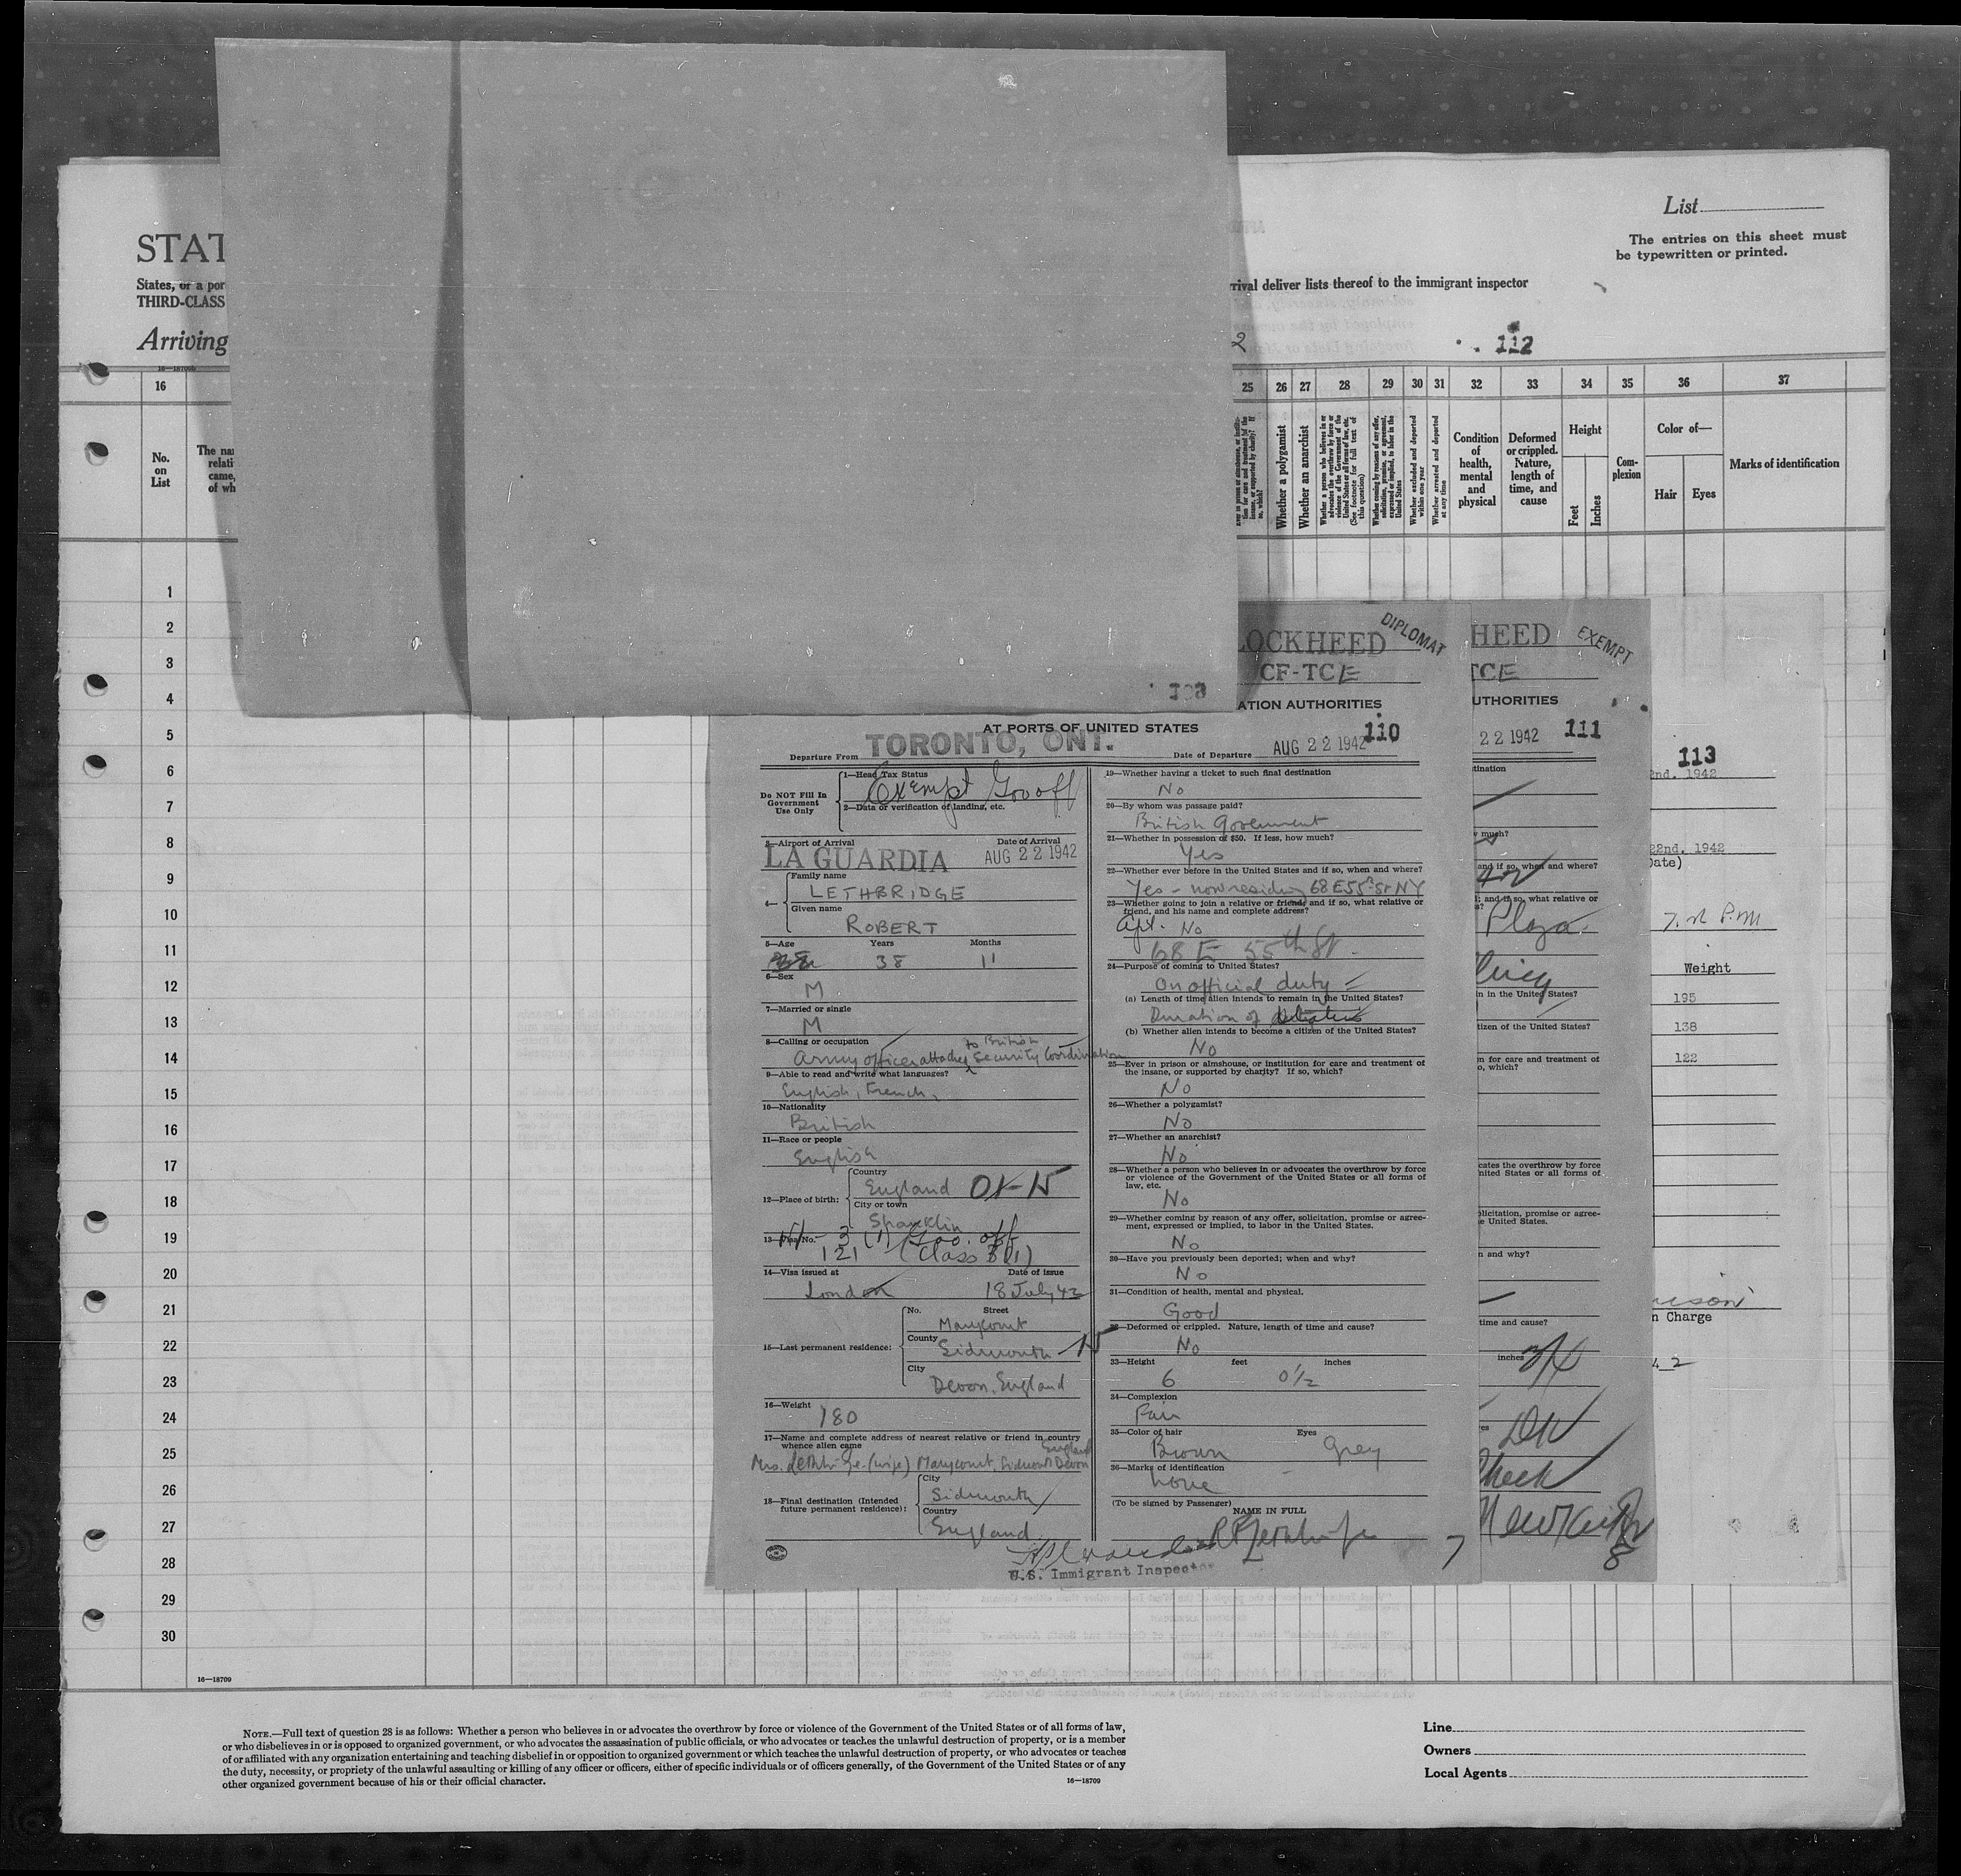 List
The entries on this sheet must
be typewritten or printed.
STAT
States, or a por
THIRD-CLASS
rrival deliver lists thereof to the immigrant inspector
Arriving
2
112
16
25 26 27 28 29 30 31 32 33 34 35 36 37
No.
on
List
The na
relati
came,
of wh
Whether a polygamist
Whether an anarchist
Whether a person who believes in or
advocates the overthrow by force or
violence of the Government of the
United States or all forms of law, etc.
(See footnote for full text of
this question)
Whether coming by reasons of any offer,
solicitation, promise, or agreement,
expressed or implied, to labor in the
United States
Whether excluded and deported
within one year
Whether arrested and deported
at any time
Condition
of
health,
mental
and
physical
Deformed
or crippled.
Nature,
length of
time, and
cause
Height
Feet
Inches
Com-
plexion
Color of—
Hair
Eyes
Marks of identification
1
2
3
4
5
6
7
8
9
10
11
12
13
14
15
16
17
18
19
20
21
22
23
24
25
26
27
28
29
30
16—18709
OCKHEED
DIPLOMAT
CF-TCE
ATION AUTHORITIES
AT PORTS OF UNITED STATES
110
Departure From TORONTO, ONT. Date of Departure AUG 22 1942
Do NOT Fill In
Government
Use Only
1—Head Tax Status
Exempt Gov off
2—Data or verification of landing, etc.
3—Airport of Arrival Date of Arrival
LA GUARDIA AUG 22 1942
4—
Family name
LETHBRIDGE
Given name
ROBERT
5—Age Years Months
38 11
6—Sex
M
7—Married or single
M
8—Calling or occupation
Army officer attached to British Security Coordination
9—Able to read and write what languages?
English, French,
10—Nationality
British
11—Race or people
English
12—Place of birth:
Country
England
City or town
Shanklin
13—Visa No.
3 (1) Gov. off
121 (Class 3(1)
14—Visa issued at Date of issue
London 18 July 42
15—Last permanent residence:
No. Street
Marycourt
County
Sidmouth
City
Devon, England
16—Weight
180
17—Name and complete address of nearest relative or friend in country
whence alien came
England
Mrs. Lethbridge (wife) Marycourt, Sidmouth Devon
18—Final destination (Intended
future permanent residence):
City
Sidmouth
Country
England
19—Whether having a ticket to such final destination
No
20—By whom was passage paid?
British Government
21—Whether in possession of $50. If less, how much?
Yes
22—Whether ever before in the United States and if so, when and where?
Yes – now residing 68 E 55th St NY
23—Whether going to join a relative or friend; and if so, what relative or
friend, and his name and complete address?
Apt. No
68 E 55th St.
24—Purpose of coming to United States?
On official duty
(a) Length of time alien intends to remain in the United States?
Duration of
(b) Whether alien intends to become a citizen of the United States?
No
25—Ever in prison or almshouse, or institution for care and treatment of
the insane, or supported by charity? If so, which?
No
26—Whether a polygamist?
No
27—Whether an anarchist?
No
28—Whether a person who believes in or advocates the overthrow by force
or violence of the Government of the United States or all forms of
law, etc.
No
29—Whether coming by reason of any offer, solicitation, promise or agree-
ment, expressed or implied, to labor in the United States.
No
30—Have you previously been deported; when and why?
No
31—Condition of health, mental and physical.
Good
32—Deformed or crippled. Nature, length of time and cause?
No
33—Height feet inches
6 0½
34—Complexion
Fair
35—Color of hair Eyes
Brown Grey
36—Marks of identification
None
(To be signed by Passenger)
NAME IN FULL
7
U.S. Immigrant Inspector
HEED
EXEMPT
TCE
UTHORITIES
22 1942 111
tination
w much?
and if so, when and where?
d; and if so, what relative or
s?
Plaza
n in the United States?
tizen of the United States?
n for care and treatment of
o, which?
cates the overthrow by force
nited States or all forms of
licitation, promise or agree-
e United States.
n and why?
time and cause?
inches
3/4
es
DK
Check
8
113
2nd. 1942
22nd. 1942
Date)
Weight
195
138
122
n Charge
NOTE.—Full text of question 28 is as follows: Whether a person who believes in or advocates the overthrow by force or violence of the Government of the United States or of all forms of law,
or who disbelieves in or is opposed to organized government, or who advocates the assassination of public officials, or who advocates or teaches the unlawful destruction of property, or is a member
of or affiliated with any organization entertaining and teaching disbelief in or opposition to organized government or which teaches the unlawful destruction of property, or who advocates or teaches
the duty, necessity, or propriety of the unlawful assaulting or killing of any officer or officers, either of specific individuals or of officers generally, of the Government of the United States or of any
other organized government because of his or their official character.
16—18709
Line
Owners
Local Agents